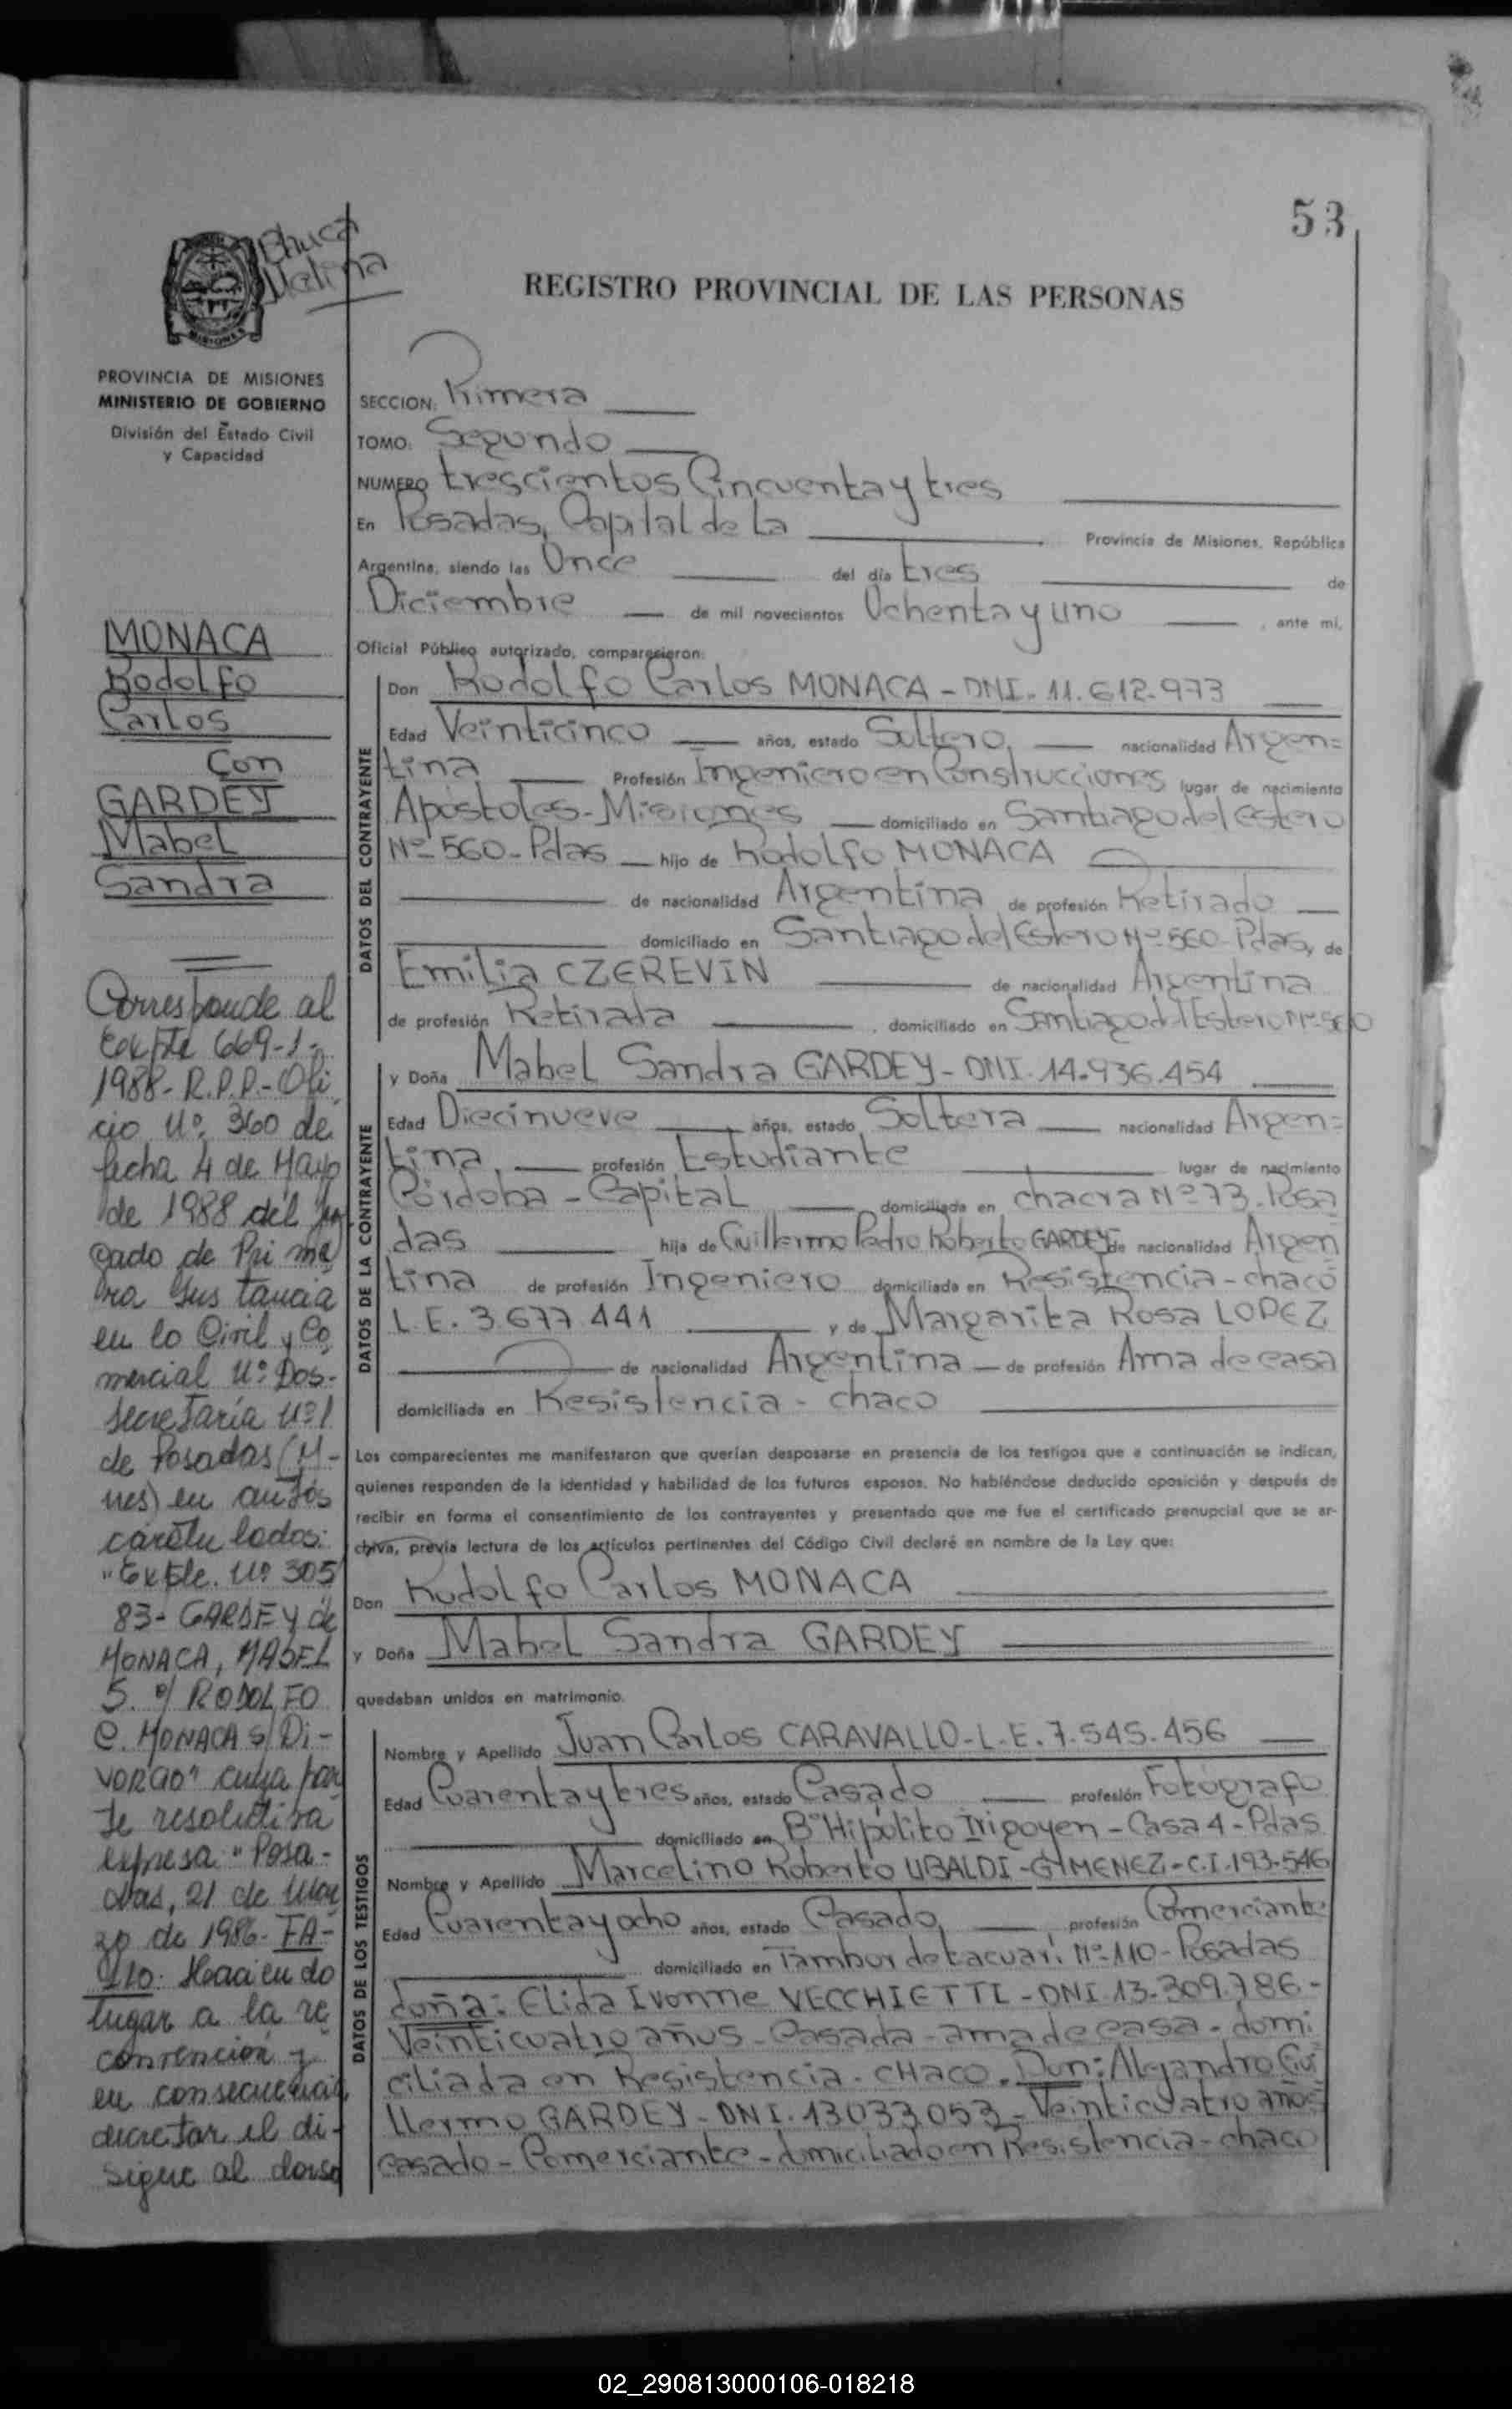 53
REGISTRO PROVINCIAL DE LAS PERSONAS
PROVINCIA DE MISIONES
MINISTERIO DE GOBIERNO
División del Estado Civil
y Capacidad
MISIONES
SECCION: Primera
TOMO: Segundo
NUMERO trescientos Cincuenta y tres
En Posadas, Capital de La Provincia de Misiones, República
Argentina, siendo las Once del día tres de
Diciembre de mil novecientos Ochenta y uno , ante mí,
Oficial Público autorizado, comparecieron:
Don Rodolfo Carlos MONACA - DNI - 11.612.973
Edad Veinticinco años, estado Soltero, nacionalidad Argen=
tina Profesión Ingeniero en Construcciones lugar de nacimiento
Apóstoles - Misiones domiciliado en Santiago del Estero
Nº 560 - Pdas hijo de Rodolfo MONACA
de nacionalidad Argentina de profesión Retirado
domiciliado en Santiago del Estero Nº 560 Pdas, de
Emilia CZEREVIN de nacionalidad Argentina
de profesión Retirada , domiciliado en Santiago del Estero Nº 560
DATOS DEL CONTRAYENTE
y Doña Mabel Sandra GARDEY - DNI. 14.936.454
Edad Diecinueve años, estado Soltera nacionalidad Argen=
tina, profesión Estudiante lugar de nacimiento
Córdoba - Capital domiciliada en chacra Nº 73. Posa
das hija de Guillermo Pedro Roberto GARDEY de nacionalidad Argen
tina de profesión Ingeniero domiciliada en Resistencia - chaco
L.E. 3.677.441 y de Margarita Rosa LOPEZ
de nacionalidad Argentina de profesión Ama de casa
domiciliada en Resistencia - chaco
DATOS DE LA CONTRAYENTE
Los comparecientes me manifestaron que querían desposarse en presencia de los testigos que a continuación se indican,
quienes responden de la identidad y habilidad de los futuros esposos. No habiéndose deducido oposición y después de
recibir en forma el consentimiento de los contrayentes y presentado que me fue el certificado prenupcial que se ar-
chiva, previa lectura de los artículos pertinentes del Código Civil declaré en nombre de la Ley que:
Don Rodolfo Carlos MONACA
y Doña Mabel Sandra GARDEY
quedaban unidos en matrimonio.
Nombre y Apellido Juan Carlos CARAVALLO - L.E. 7.545.456
Edad Cuarenta y tres años, estado Casado profesión Fotógrafo
domiciliado en Bº Hipólito Irigoyen - Casa 4 - Pdas
Nombre y Apellido Marcelino Roberto UBALDI - GIMENEZ - C.I. 193.546
Edad Cuarenta y ocho años, estado Casado, profesión Comerciante
domiciliado en Tambor de tacuarí Nº 110 - Posadas
doña: Elida Ivonne VECCHIETTI - DNI 13.309.786 -
Veinticuatro años - Casada - ama de casa - domi
ciliada en Resistencia - CHaco. Don: Alejandro Gui
llermo GARDEY - DNI. 13033053 - Veinticuatro años
casado - Comerciante - domiciliado en Resistencia - chaco
DATOS DE LOS TESTIGOS
MONACA
Rodolfo
Carlos
Con
GARDEY
Mabel
Sandra
Corresponde al
Expte 669-1-
1988- R.P.P.- Ofi
cio Nº 360 de
fecha 4 de Mayo
de 1988 del Juz
gado de Prime
ra Instancia
en lo Civil y Co
mercial Nº Dos-
Secretaría Nº 1
de Posadas (M-
nes) en autos
caratulados:
"Expte. Nº 305
83- GARDEY de
MONACA, MABEL
S. c/ RODOLFO
C. MONACA s/ Di-
VORCIO" cuya par
te resolutiva
expresa "Posa-
das, 21 de Mar
zo de 1986- FA-
LLO: Haciendo
lugar a la re
convención y
en consecuencia
decretar el di-
sigue al dorso
02_290813000106-018218